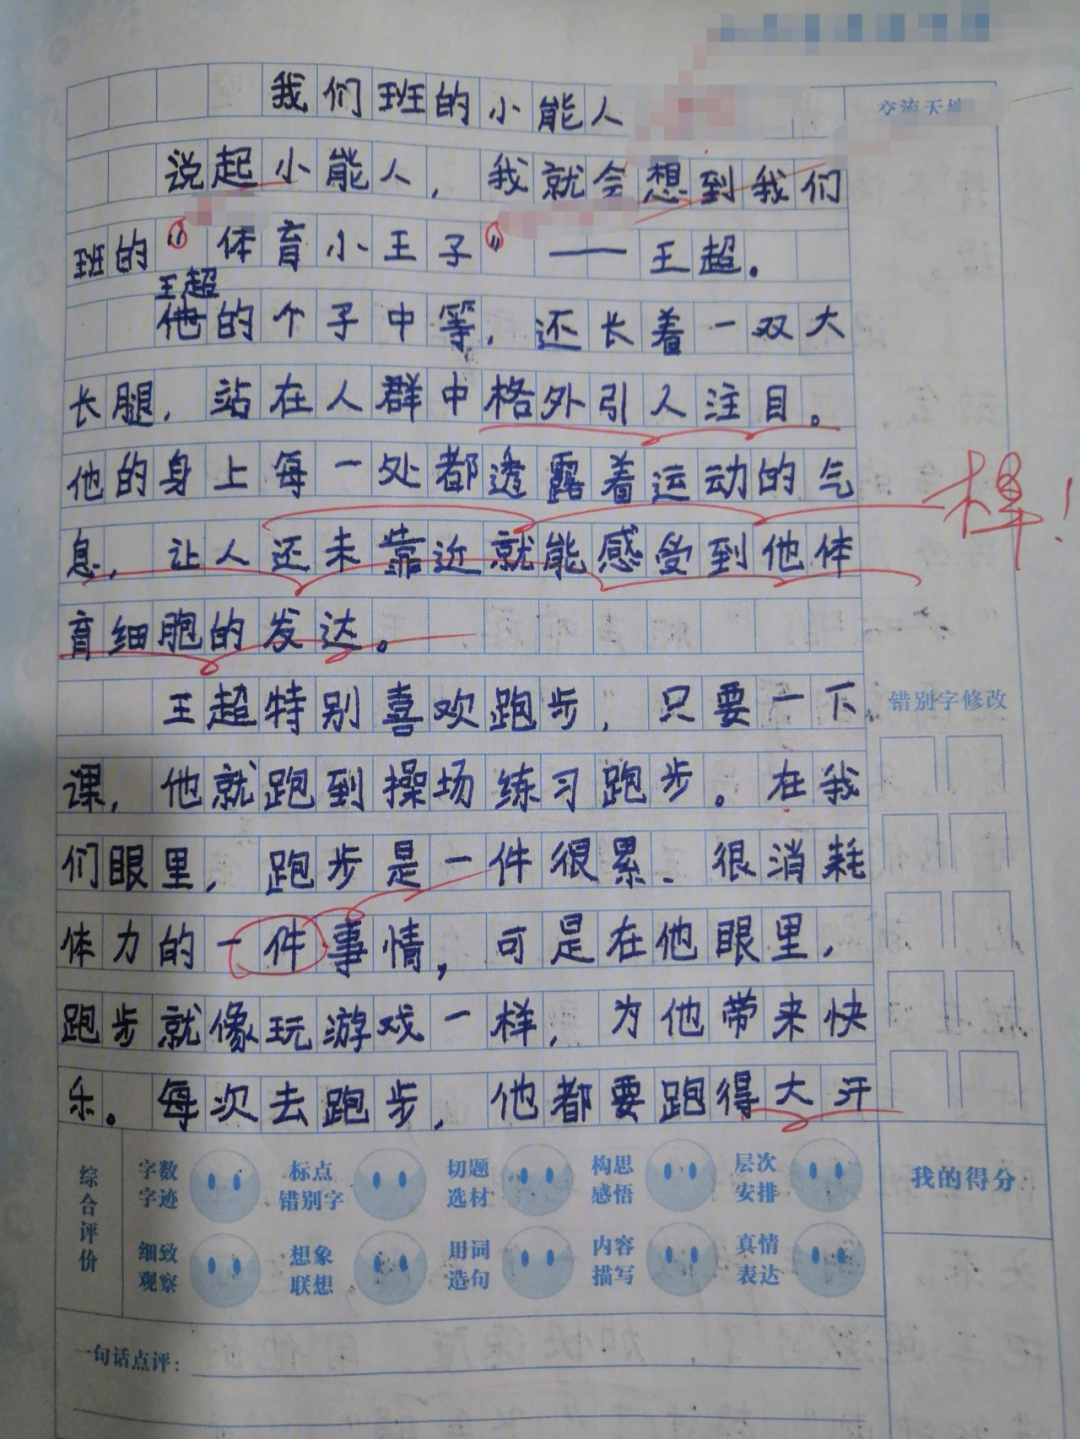 我们班的小能人
交流天地
说起小能人，我就会想到我们
班的“体育小王子”——王超。
王超
他的个子中等，还长着一双大
长腿，站在人群中格外引人注目。
他的身上每一处都透露着运动的气
棒！
息，让人还未靠近就能感受到他体
育细胞的发达。
王超特别喜欢跑步，只要一下
错别字修改
课，他就跑到操场练习跑步。在我
们眼里，跑步是一件很累、很消耗
体力的一件事情，可是在他眼里，
跑步就像玩游戏一样，为他带来快
乐。每次去跑步，他都要跑得大汗
综合评价
字数 字迹
标点 错别字
切题 选材
构思 感悟
层次 安排
我的得分
细致 观察
想象 联想
用词 造句
内容 描写
真情 表达
一句话点评：